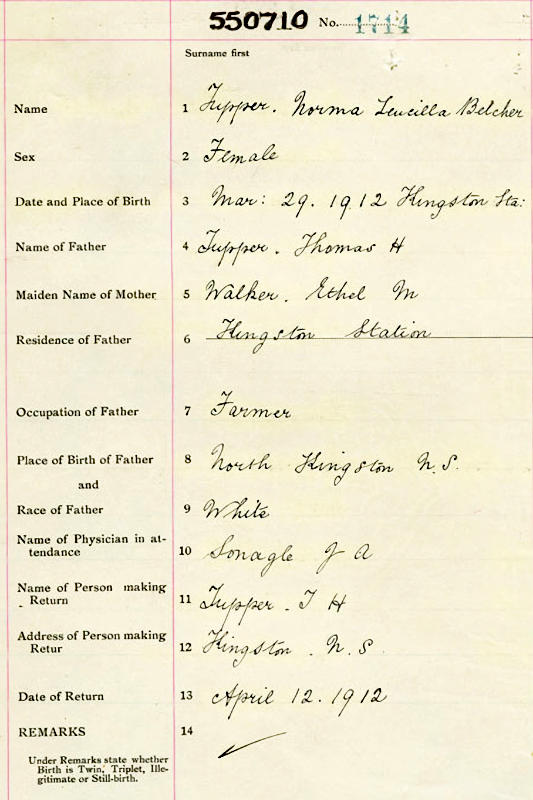 550710 No. 1714
Surname first
Name 1 Tupper. Norma Leucilla Belcher
Sex 2 Female
Date and Place of Birth 3 Mar: 29. 1912 Kingston Sta:
Name of Father 4 Tupper. Thomas H
Maiden Name of Mother 5 Walker. Ethel M
Residence of Father 6 Kingston Station
Occupation of Father 7 Farmer
Place of Birth of Father 8 North Kingston N.S.
and
Race of Father 9 White
Name of Physician in at-
tendance 10 Sonagle J A
Name of Person making
Return 11 Tupper. T H
Address of Person making
Retur 12 Kingston. N.S.
Date of Return 13 April 12. 1912
REMARKS 14
Under Remarks state whether
Birth is Twin, Triplet, Ille-
gitimate or Still-birth.